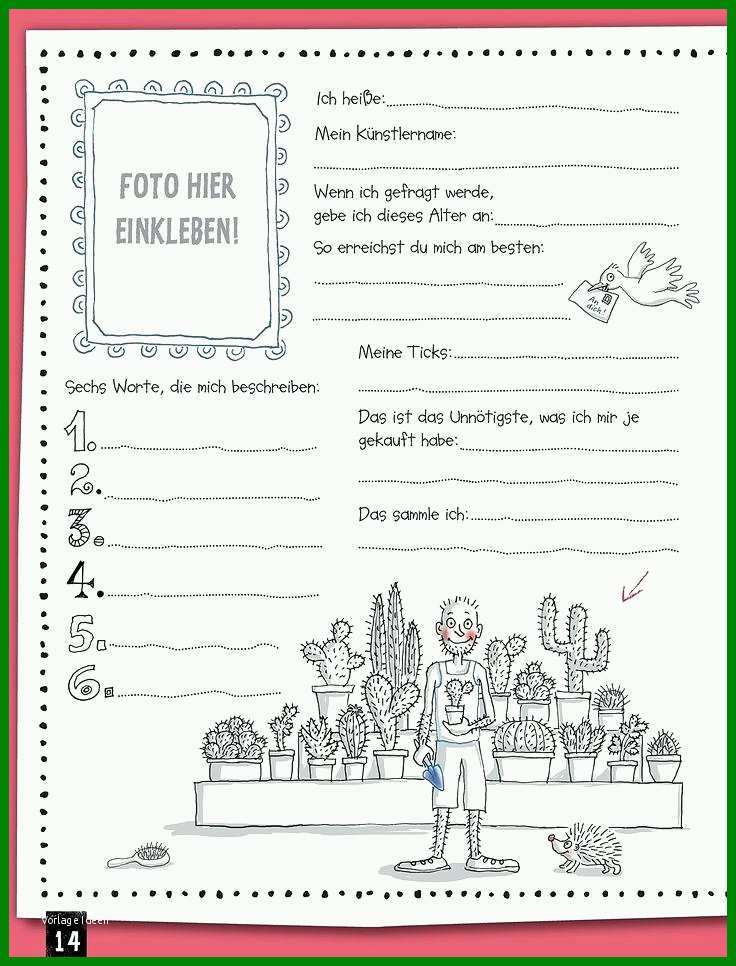 FOTO HIER
EINKLEBEN!
Ich heiße:
Mein Künstlername:
Wenn ich gefragt werde,
gebe ich dieses Alter an:
So erreichst du mich am besten:
An
dich!
Meine Ticks:
Das ist das Unnötigste, was ich mir je
gekauft habe:
Das sammle ich:
Sechs Worte, die mich beschreiben:
1.
2.
3.
4.
5.
6.
Vorlage Ideen
14